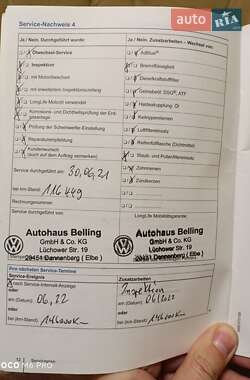 auto
RIA
Service-Nachweis 4
Ja / Nein. Durchgeführt wurde:
Ja / Nein. Zusatzarbeiten – Wechsel von:
Ölwechsel-Service
AdBlue®
Inspektion
Bremsflüssigkeit
mit Motorölwechsel
Dieselkraftstofffilter
mit erweitertem Inspektionsumfang
Getriebeöl: DSG®, ATF
LongLife Motoröl verwendet
Haldexkupplung: Öl
Korrosions- und Dichtheitsprüfung der Erdgasanlage
Keilrippenriemen
Luftfiltereinsatz
Prüfung der Scheinwerfer-Einstellung
Reparaturempfehlung
Staub- und Pollenfiltereinsatz
(auch auf dem Auftrag vermerken)
Zahnriemen
Zündkerzen
Service durchgeführt am: 30.06.21
bei km-Stand: 116449
Rechnungsnummer:
Service durchgeführt von:
LongLife Mobilitätsgarantie:
Autohaus Belling
GmbH & Co. KG
Lüchower Str. 19
29451 Dannenberg ( Elbe )
Autohaus Belling
GmbH & Co. KG
Lüchower Str. 19
29451 Dannenberg ( Elbe )
Ihre nächsten Service-Termine
Service-Ereignis
Zusatzarbeiten
nach Service-Intervall-Anzeige
Inspektion
oder
am (Datum) 06.22
am (Datum) 06/2022
oder
oder
bei (km-Stand) 146000Km
bei (km-Stand) 146000Km
12
Serviceplan
REDMI NOTE 8 PRO